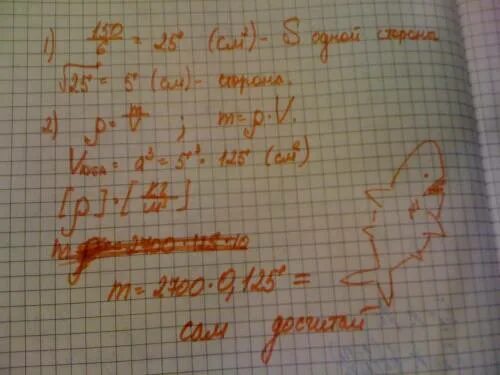 1) 150/6 = 25 (см²) - S одной стороны
√25 = 5 (см) - сторона.
2) ρ = m/V ; m = ρ·V.
Vкуба = a³ = 5³ = 125 (см³)
[ρ] = [кг/м³]
m = 2700·125·10
m = 2700·0,125 =
сам досчитай